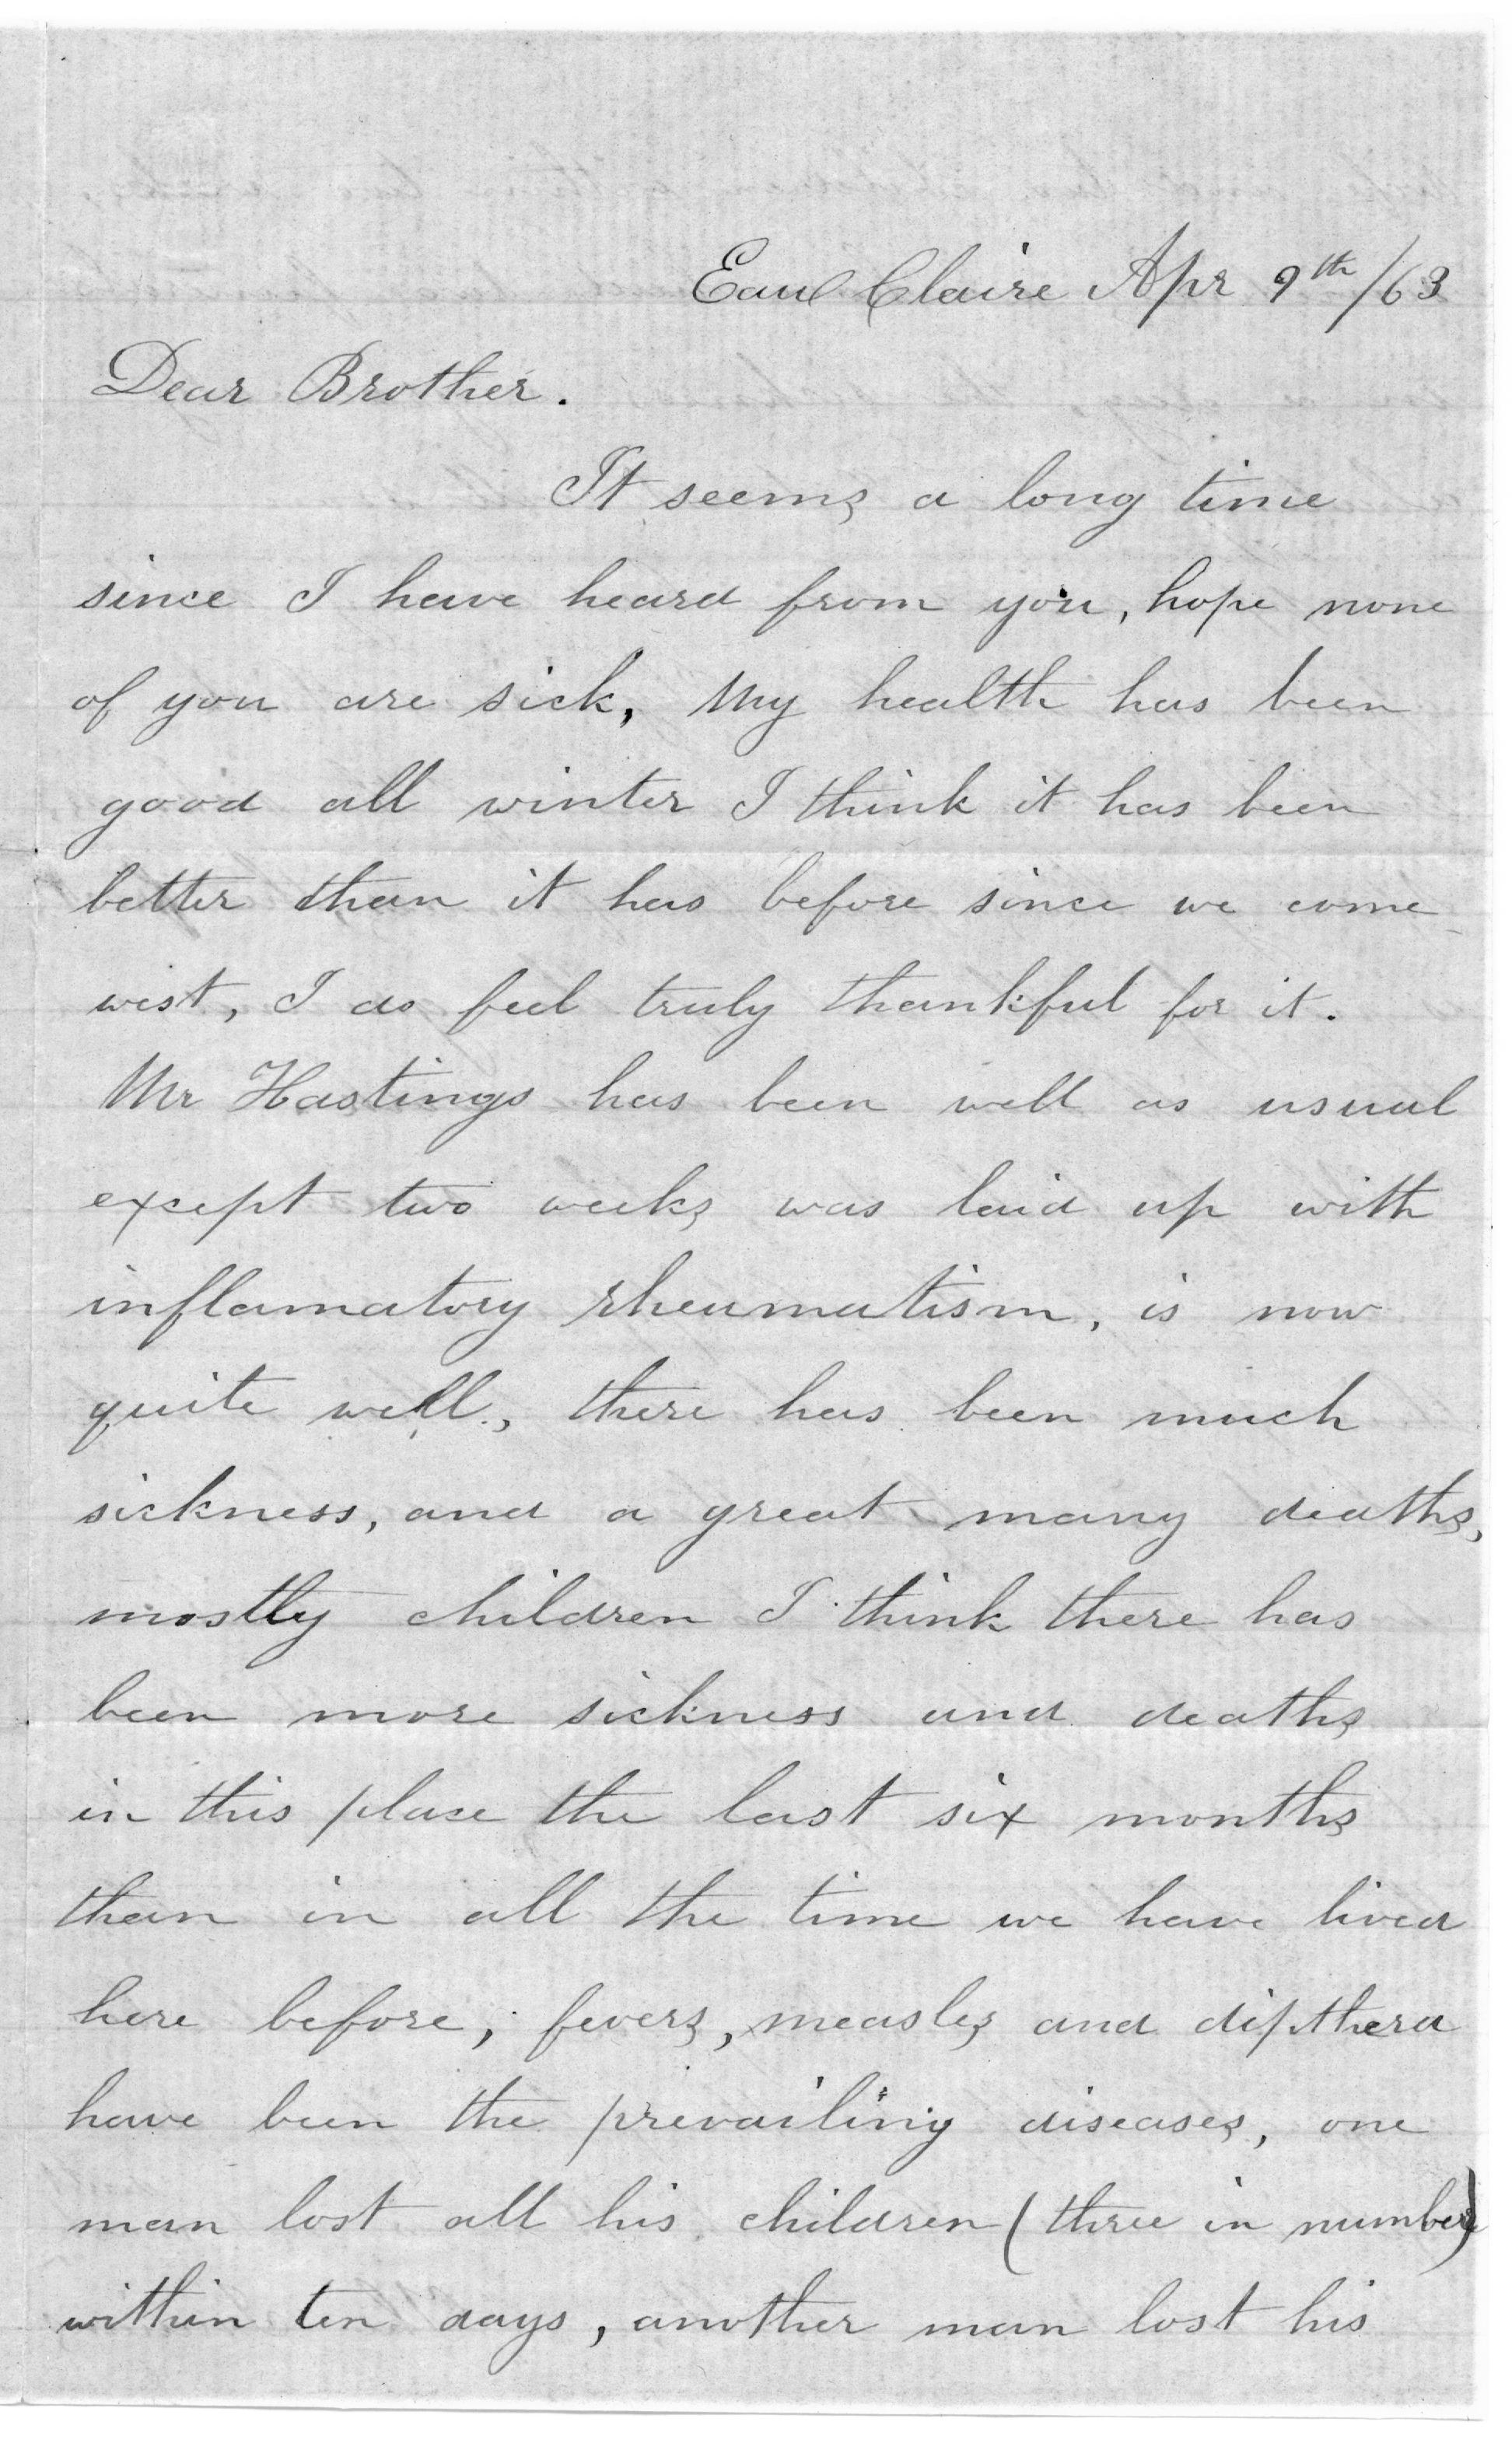 Eau Claire Apr 9th /63
Dear Brother.
It seems a long time
since I have heard from you, hope none
of you are sick, My health has been
good all winter I think it has been
better than it has before since we come
west, I do feel truly thankful for it.
Mr Hastings has been well as usual
except two weeks was laid up with
inflamatory rheumatism, is now
quite well, there has been much
sickness, and a great many deaths,
mostly children I think there has
been more sickness and deaths
in this place the last six months
than in all the time we have lived
here before, fevers, measles and dipthera
have been the prevailing diseases, one
man lost all his children (three in number)
within ten days, another man lost his